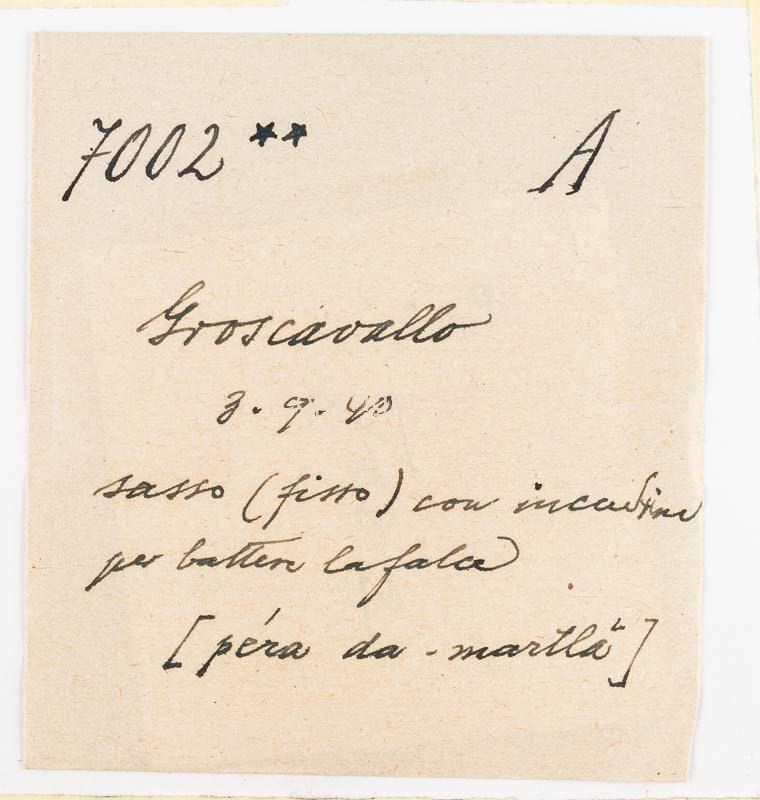 7002 ** A
Groscavallo
3. 9. 40
sasso (fisso) con incudine
per battere la falce
[péra da martlá]